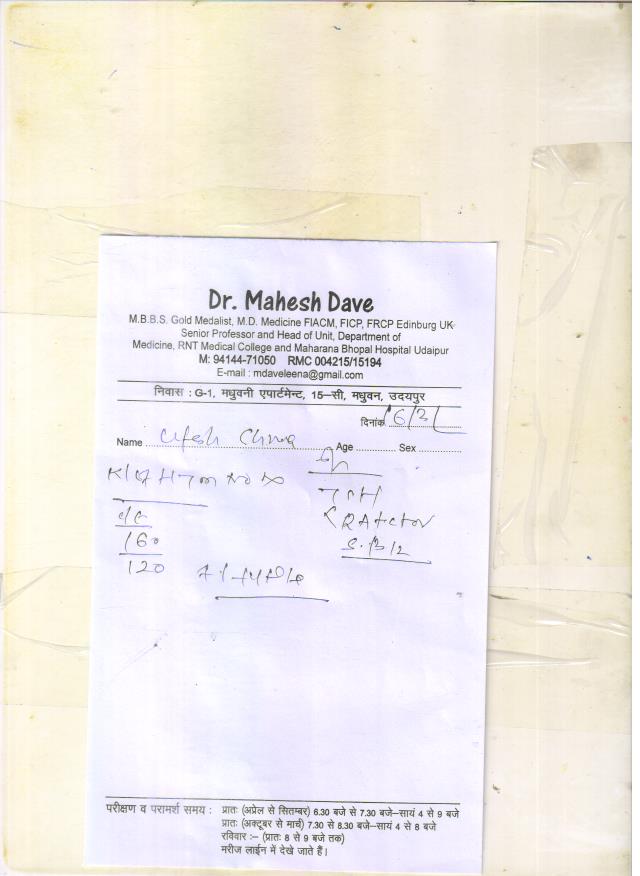 Dr. Mahesh Dave
M.B.B.S. Gold Medalist, M.D. Medicine FIACM, FICP, FRCP Edinburg UK
Senior Professor and Head of Unit, Department of
Medicine, RNT Medical College and Maharana Bhopal Hospital Udaipur
M: 94144-71050 RMC 004215/15194
E-mail : mdaveleena@gmail.com
निवास : G-1, मधुवनी एपार्टमेन्ट, 15–सी, मधुवन, उदयपुर
दिनांक
Name Age Sex
TSH
RA Factor
S. B12
160
120
परीक्षण व परामर्श समय : प्रातः (अप्रेल से सितम्बर) 6.30 बजे से 7.30 बजे–सायं 4 से 9 बजे
प्रातः (अक्टूबर से मार्च) 7.30 से 8.30 बजे–सायं 4 से 8 बजे
रविवार :– (प्रातः 8 से 9 बजे तक)
मरीज लाईन में देखे जाते हैं।